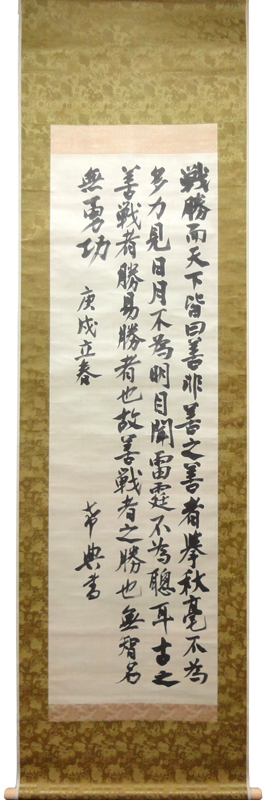 戦勝而天下皆曰善非善之善者挙秋毫不為
多力見日月不為明目聞雷霆不為聰耳古之
善戦者勝易勝者也故善戦者之勝也無智名
無勇功
庚戌立春
希典書